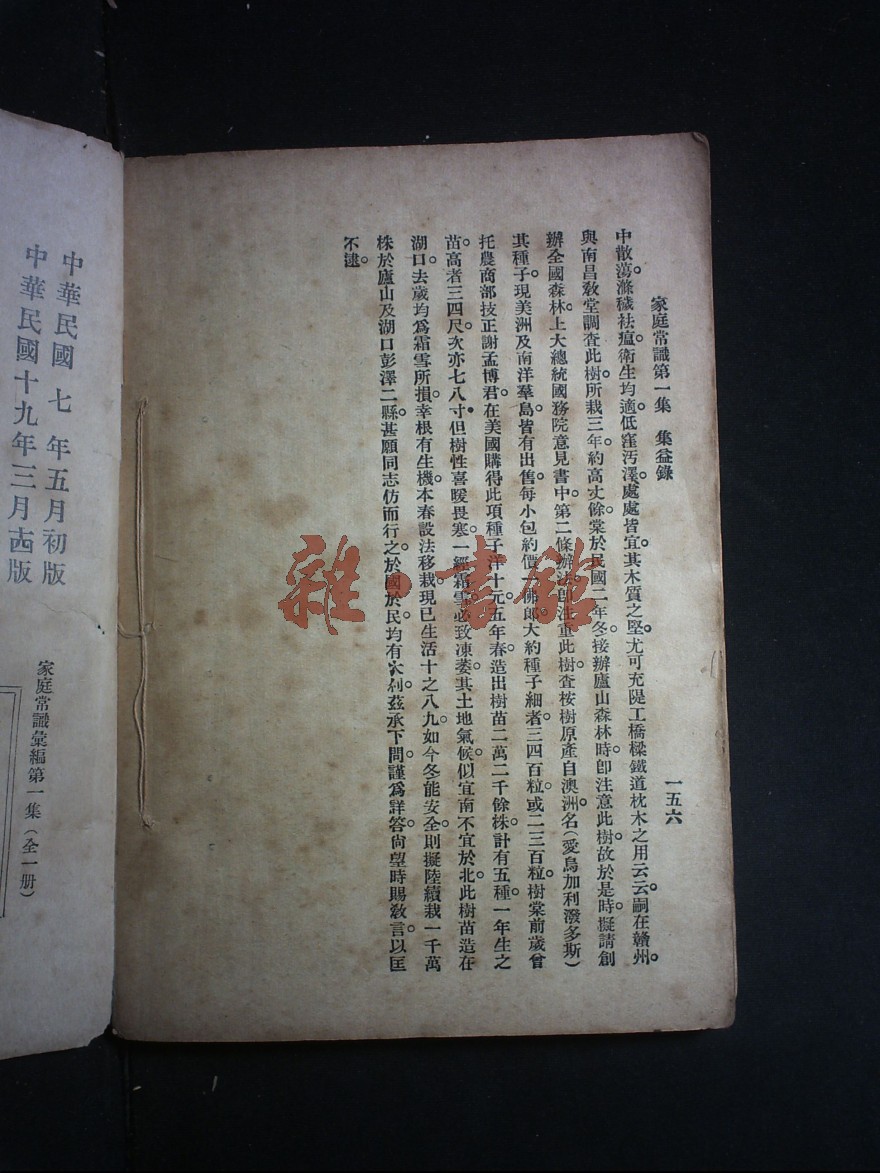 家庭常識第一集　集益錄
一五六
中散蕩滌穢祛瘟。衛生均適。低窪汚澤。處處皆宜。其木質之堅。尤可充隄工橋樑鐵道枕木之用云云。嗣在贛州。
與南昌敎堂調查此樹。所栽三年。約高丈餘。棠於民國二年冬。接辦廬山森林時。卽注意此樹。故於是時。擬請創
辦全國森林。上大總統國務院意見書中。第二條辦法。卽注重此樹。查桉樹原產自澳洲。名(愛鳥加利潑多斯)
其種子。現美洲及南洋羣島。皆有出售。每小包約價一佛郎。大約種子細者三四百粒。或二三百粒。樹棠前歲曾
托農商部技正謝孟博君。在美國購得此項種子洋十元。五年春。造出樹苗二萬二千餘株。計有五種。一年生之
苗。高者三四尺。次亦七八寸。但樹性喜暖畏寒。一經霜雪。必致凍萎。其土地氣候。似宜南不宜於北。此樹苗造在
湖口。去歲均爲霜雪所損。幸根有生機。本春設法移栽。現已生活十之八九。如今冬能安全。則擬陸續栽一千萬
株於廬山及湖口彭澤二縣。甚願同志仿而行之。於國於民。均有大利。茲承下問。謹爲詳答。尙望時賜敎言。以匡
不逮。
中華民國七年五月初版
中華民國十九年三月西版
家庭常識彙編第一集(全一册)
雜書館